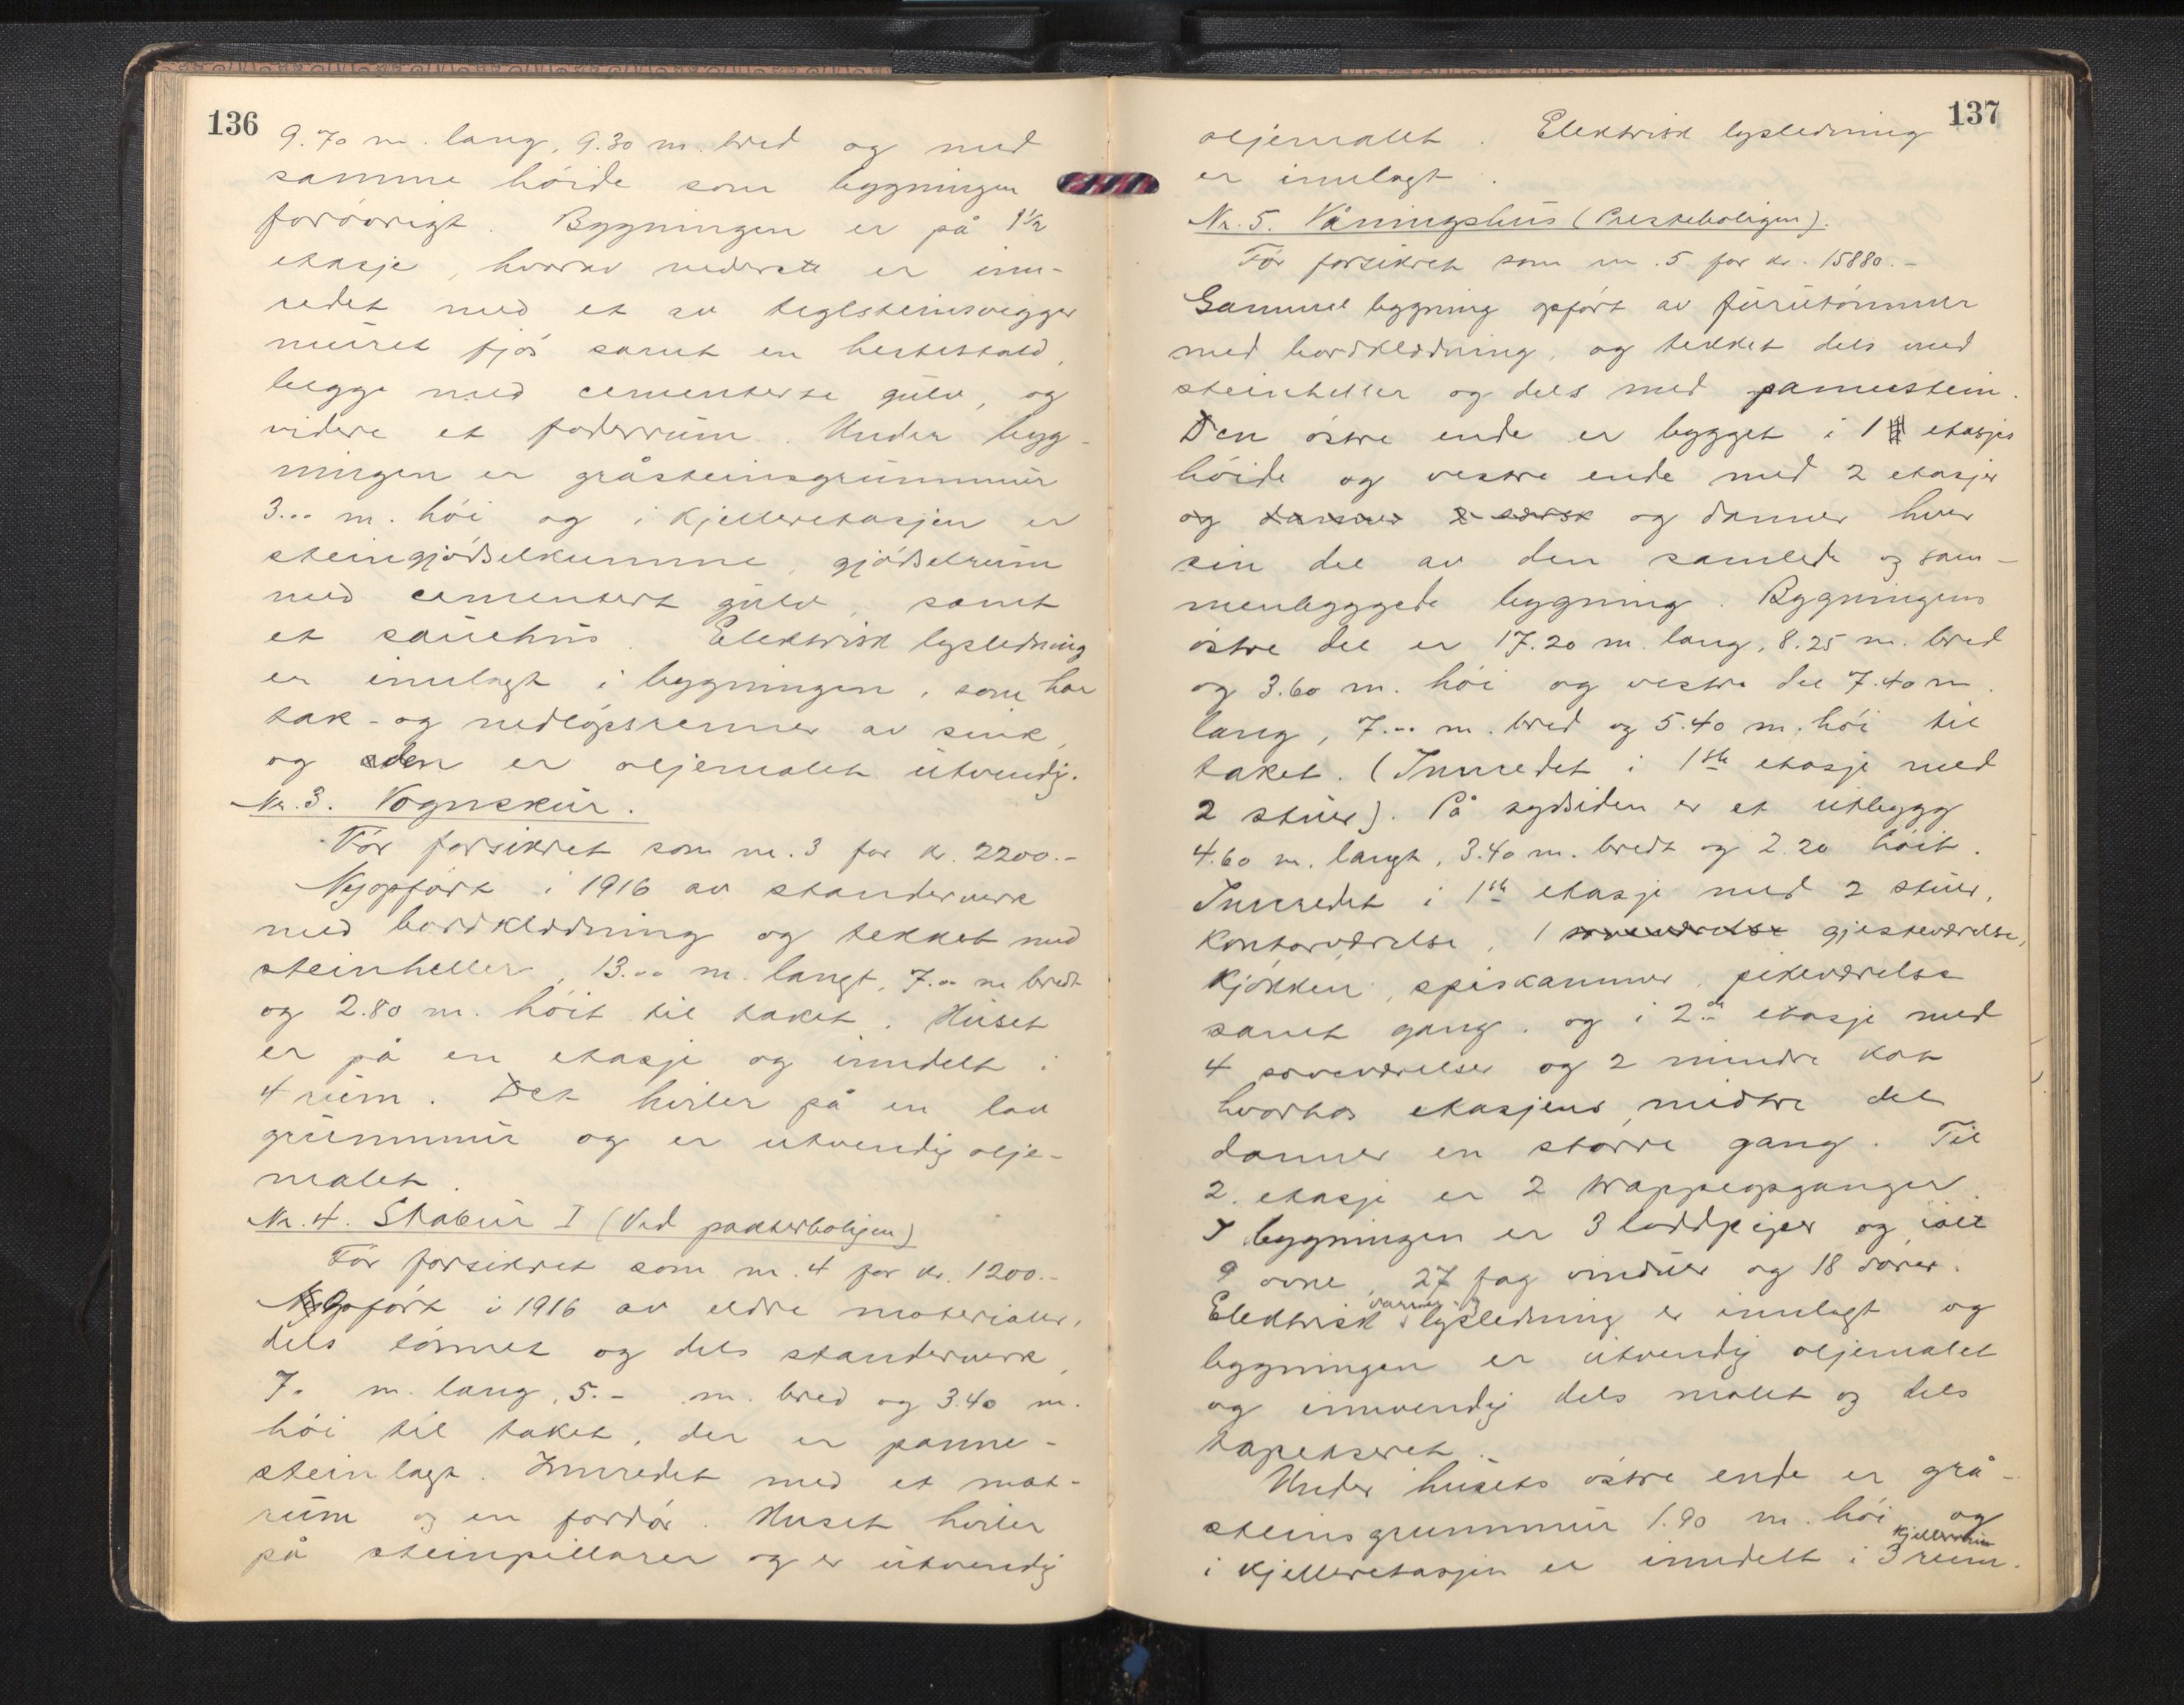 136
9.70 m. lang, 9.30 m. bred og med
samme höide som bygningen
forövrigt. Bygningen er på 1½
etasje, hvorav nederste er inn-
redet med et av teglsteinsvegger
muret fjös samt en hestestald,
begge med cementerte gulv, og
videre et foderrum. Under byg-
ningen er gråsteinsgrunnmur
3.00 m. höi og i kjelleretasjen er
steingjödselkumme, gjödselrum
med cementert gulv, samt
et sauehus. Elektrisk lysledning
er innlagt i bygningen, som har
tak- og nedlöpsrenner av sink,
og den er oljemalet utvendig.
Nr. 3. Vognskur.
För forsikret som nr. 3 for kr. 2200.-
Nyopfört i 1916 av standerverk
med bordklædning og tekket med
steinheller, 13.00 m. langt, 7.00 m bredt
og 2.80 m. höit til taket. Huset
er på en etasje og inndelt i
4 rum. Det hviler på en lav
grunnmur og er utvendig olje-
malet.
Nr. 4. Stabur I (Ved pakterboligen)
För forsikret som nr. 4 for kr. 1200.-
Opfört i 1916 av eldre materialer,
dels tömret og dels standerverk,
7. m. lang, 5.- m. bred og 3.40 m.
höi til taket, der er panne-
steinlagt. Innredet med et mat-
rum og en fordör. Huset hviler
på steinpillarer og er utvendig
137
oljemalet. Elektrisk lysledning
er innlagt.
Nr. 5. Våningshus (Presteboligen).
För forsikret som nr. 5 for kr. 15880.-
Gammel bygning opfört av furutömmer
med bordklædning, og tekket dels med
steinheller og dels med pannestein.
Den östre ende er bygget i 1 etasjes
höide og vestre ende med 2 etasjer
og danner 2 særsk og danner hver
sin del av den samlede og sam-
menbyggede bygning. Bygningens
östre del er 17.20 m. lang, 8.25 m. bred
og 3.60 m. höi og vestre del 7.40 m.
lang, 7.00 m. bred og 5.40 m. höi til
taket. (Innredet i 1ste etasje med
2 stuer). På sydsiden er et utbygg
4.60 m. langt, 3.40 m. bredt og 2.20 höit.
Innredet i 1ste etasje med 2 stuer,
kontorværelse, 1 soveværelse gjesteværelse,
kjökken, spiskammer, pikeværelse
samt gang, og i 2. etasje med
4 soveværelser og 2 mindre kot
hvorhos etasjens midtre del
danner en större gang. Til
2. etasje er 2 trappeopganger.
I bygningen er 3 loddpiper og ialt
9 ovne, 27 fag vinduer og 18 dörer.
varme- og
Elektrisk lysledning er innlagt og
bygningen er utvendig oljemalet
og innvendig dels malet og dels
tapetseret.
Under husets östre ende er grå-
steinsgrunnmur 1.90 m. höi og
kjellerrum
i kjelleretasjen er inndelt i 3 rum.